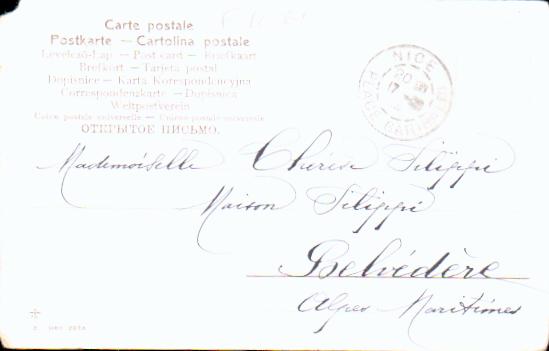 Carte postale
Postkarte — Cartolina postale
Levelező-Lap — Post card — Briefkaart
Brefkort — Tarjeta postal
Dopisnice — Karta Korespondencyjna
Correspondenzkarte — Dopisnica
Weltpostverein
Carte postale universelle — Unione postale universale
ОТКРЫТОЕ ПИСЬМО.
NICE
20
17
PLACE GARIBALDI
Mademoiselle Thérèse Filippi
Maison Filippi
Belvédère
Alpes Maritimes